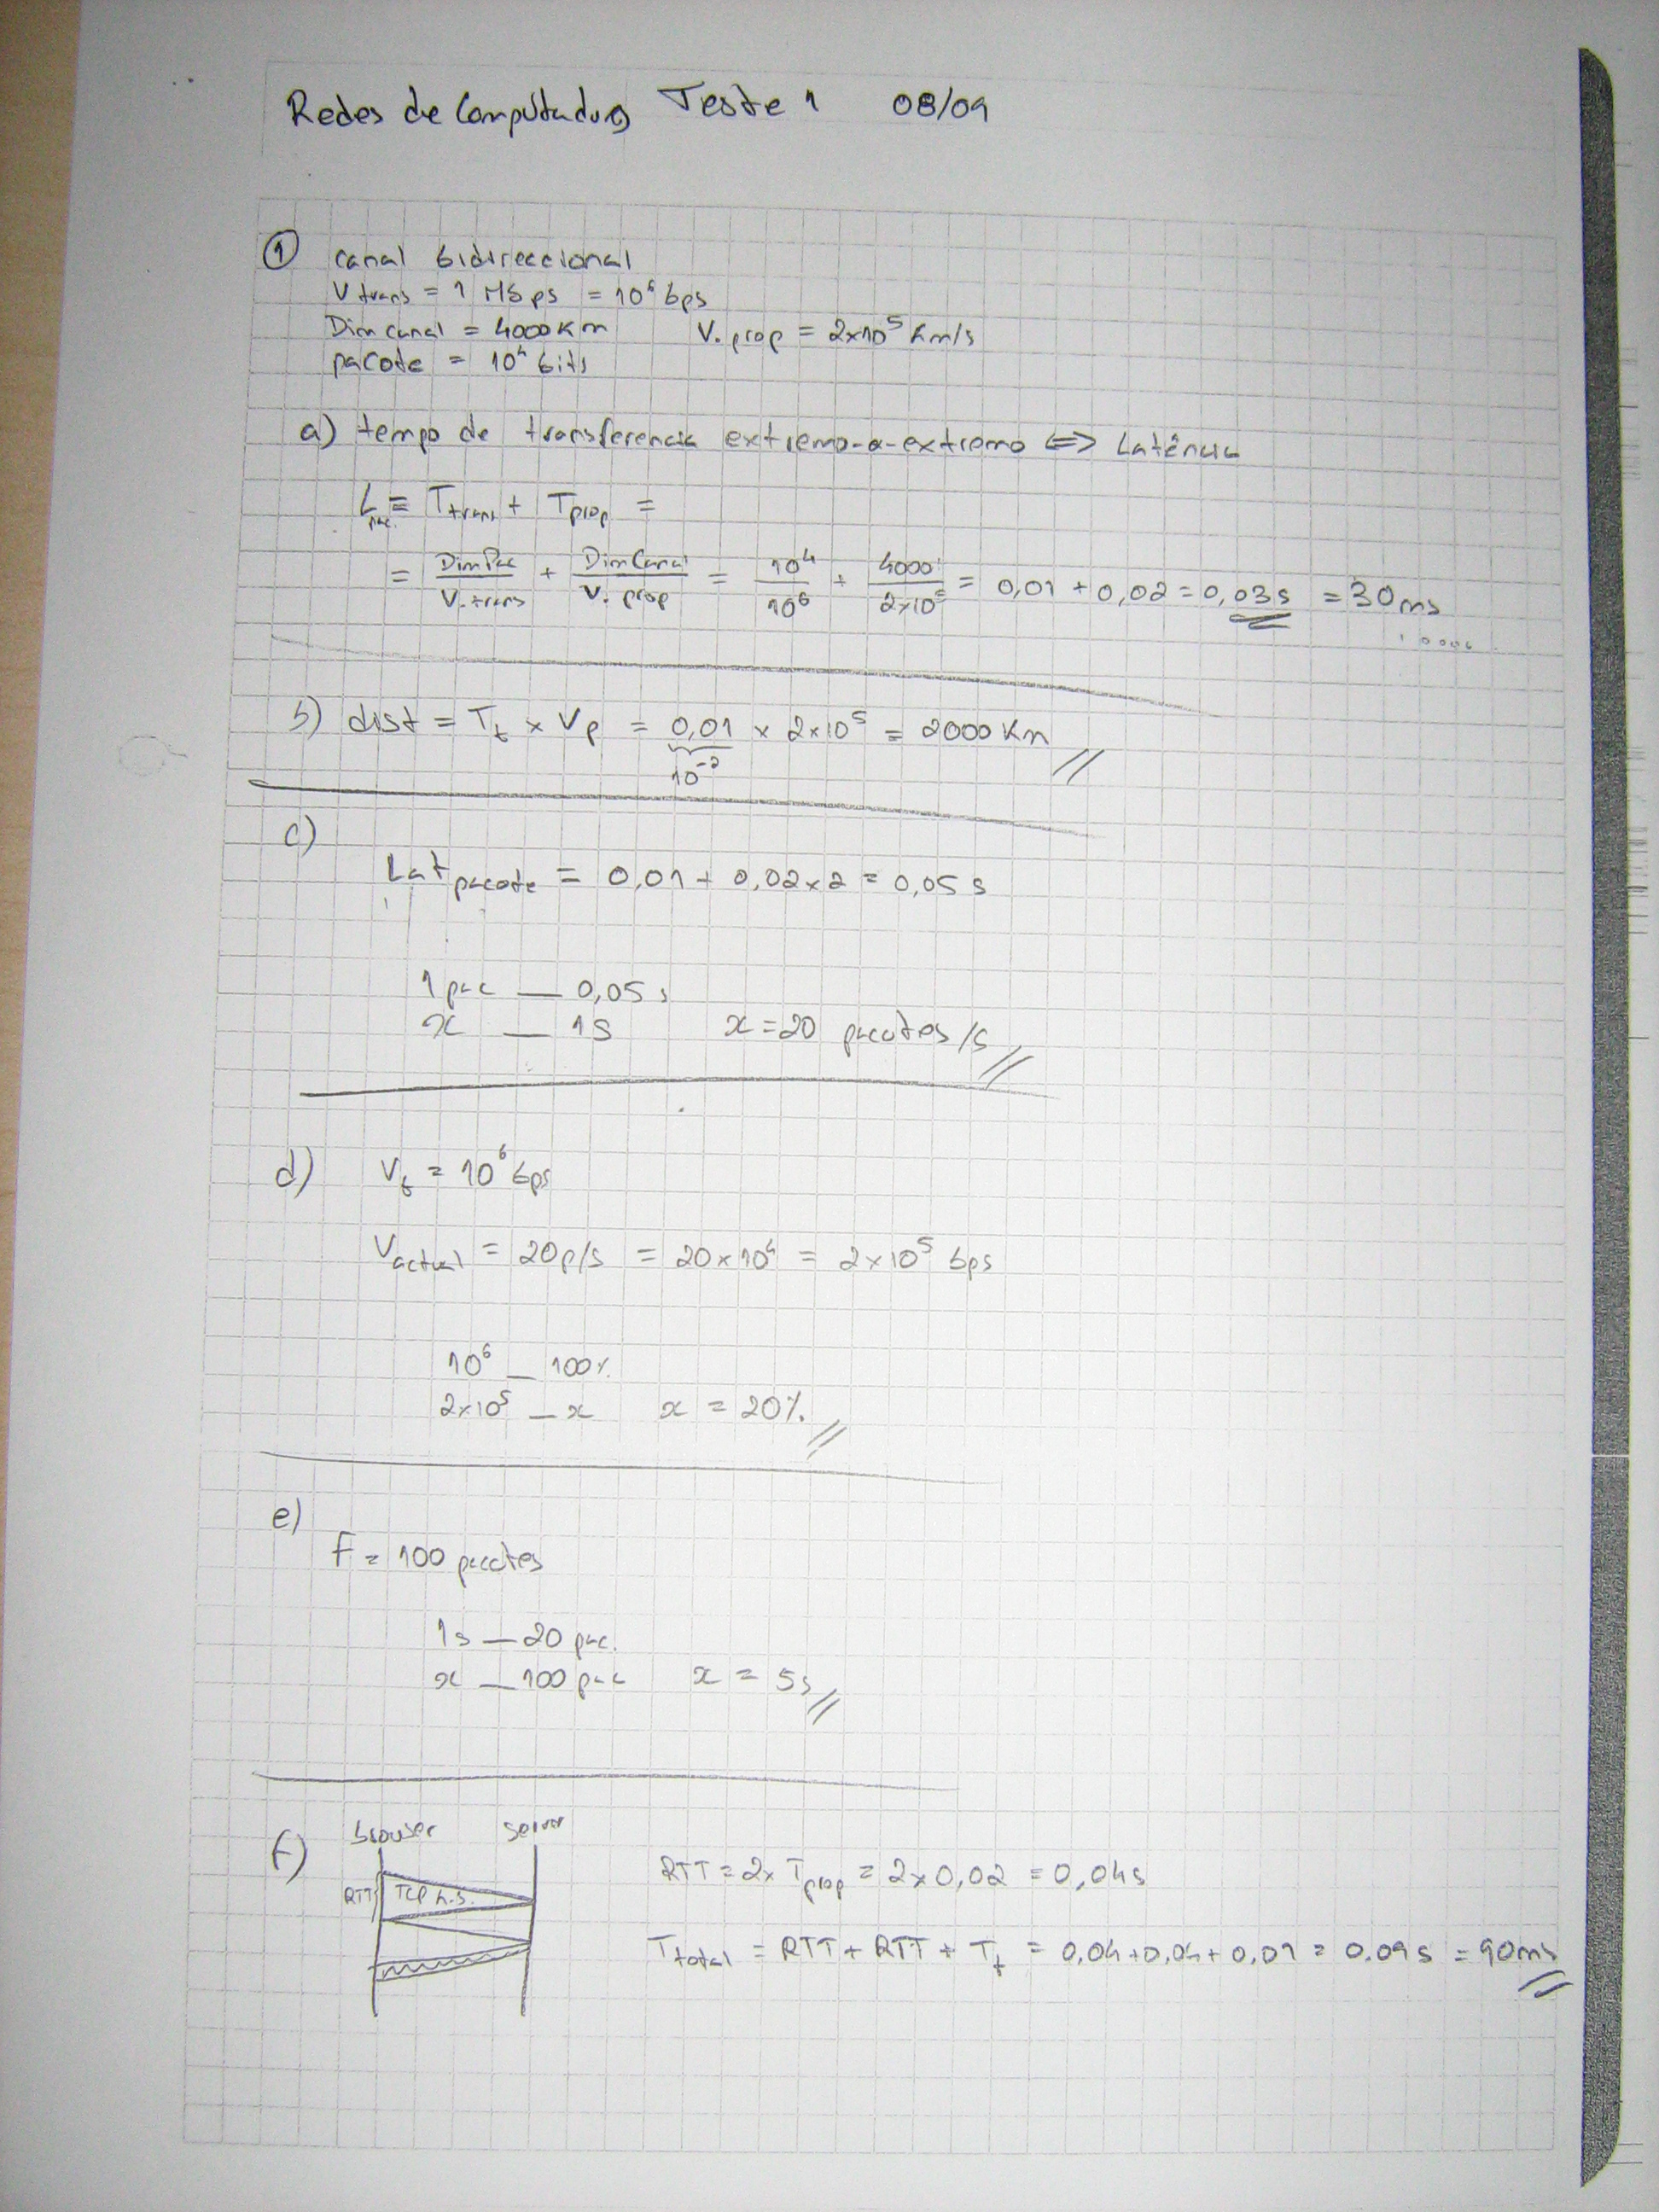 Redes de Computadores Teste 1 08/09
① canal bidireccional
V trans = 1 Mbps = 10⁶ bps
Dim canal = 4000 Km V. prop = 2x10⁵ Km/s
pacote = 10⁴ bits
a) tempo de transferencia extremo-a-extremo <=> Latência
L pac. = T trans + T prop =
= Dim Pac / V. trans + Dim Canal / V. prop = 10⁴ / 10⁶ + 4000 / 2x10⁵ = 0,01 + 0,02 = 0,03 s = 30 ms
b) dist = T t x V p = 0,01 x 2x10⁵ = 2000 Km //
10⁻²
c)
Lat pacote = 0,01 + 0,02 x 2 = 0,05 s
1 pac — 0,05 s
x — 1s x = 20 pacotes /s //
d) V t = 10⁶ bps
V actual = 20 p/s = 20 x 10⁴ = 2 x 10⁵ bps
10⁶ — 100%
2x10⁵ — x x = 20% //
e)
F = 100 pacotes
1s — 20 pac.
x — 100 pac x = 5s //
f) browser server
RTT TCP h.s. RTT = 2x T prop = 2 x 0,02 = 0,04 s
T total = RTT + RTT + T t = 0,04 + 0,04 + 0,01 = 0.09 s = 90 ms //